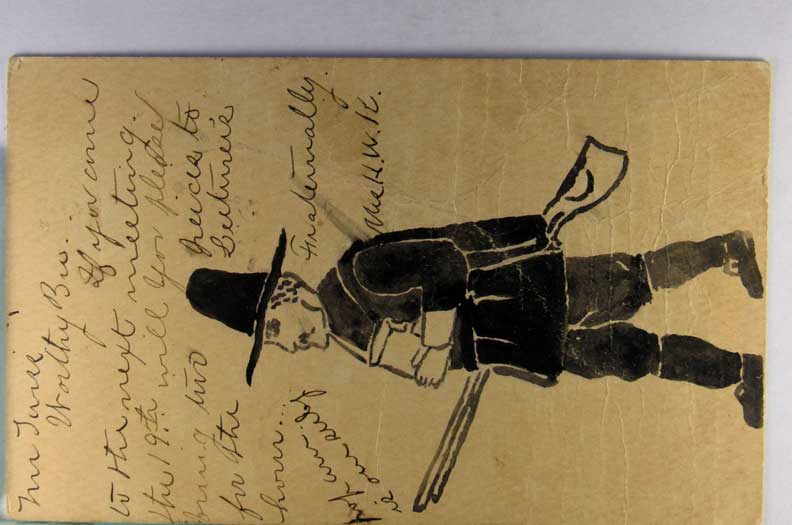 Mr
Worthy Bro.
If you come
to the next meeting.
the 19th will you please
bring two to
for the Lecturer's
hour...
Fraternally.
Mrs H.W.K.